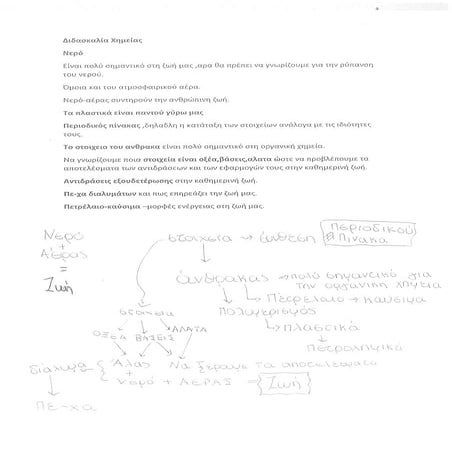 Διδασκαλία Χημείας
Νερό
Είναι πολύ σημαντικό στη ζωή μας ,αρα θα πρέπει να γνωρίζουμε για την ρύπανση
του νερού.
Όμοια και του ατμοσφαιρικού αέρα.
Νερό-αέρας συντηρούν την ανθρώπινη ζωή.
Τα πλαστικά είναι παντού γύρω μας
Περιοδικός πίνακας ,δηλαδλη η κατάταξη των στοιχείων ανάλογα με τις ιδιότητες
τους.
Το στοιχειο του ανθρακα ειναι πολύ σημαντικό στη οργανική χημεία.
Να γνωρίζουμε ποια στοιχεία είναι οξέα,βάσεις,αλατα ώστε να προβλέπουμε τα
αποτελέσματα των αντιδράσεων και των εφαρμογών τους στην καθημερινή ζωή.
Αντιδράσεις εξουδετέρωσης στην καθημερινή ζωή.
Πε-χα διαλυμάτων και πως επηρεάζει την ζωή μας.
Πετρέλαιο-καύσιμα –μορφές ενέργειας στη ζωή μας.
Νερό
+
Αέρας
=
Ζωή
στοιχεία → ένωση
Περιοδικού
Πίνακα
άνθρακας → πολύ σημαντικό για
την οργανική χημεία
Πετρέλαιο → καύσιμα
Πολυμερισμός
Πλαστικά
στοιχεία
ΟΞΕΑ ΒΑΣΕΙΣ ΑΛΑΤΑ
διάλυμα { Άλας
+
νερό + ΑΕΡΑΣ = Ζωή
Πε-χα